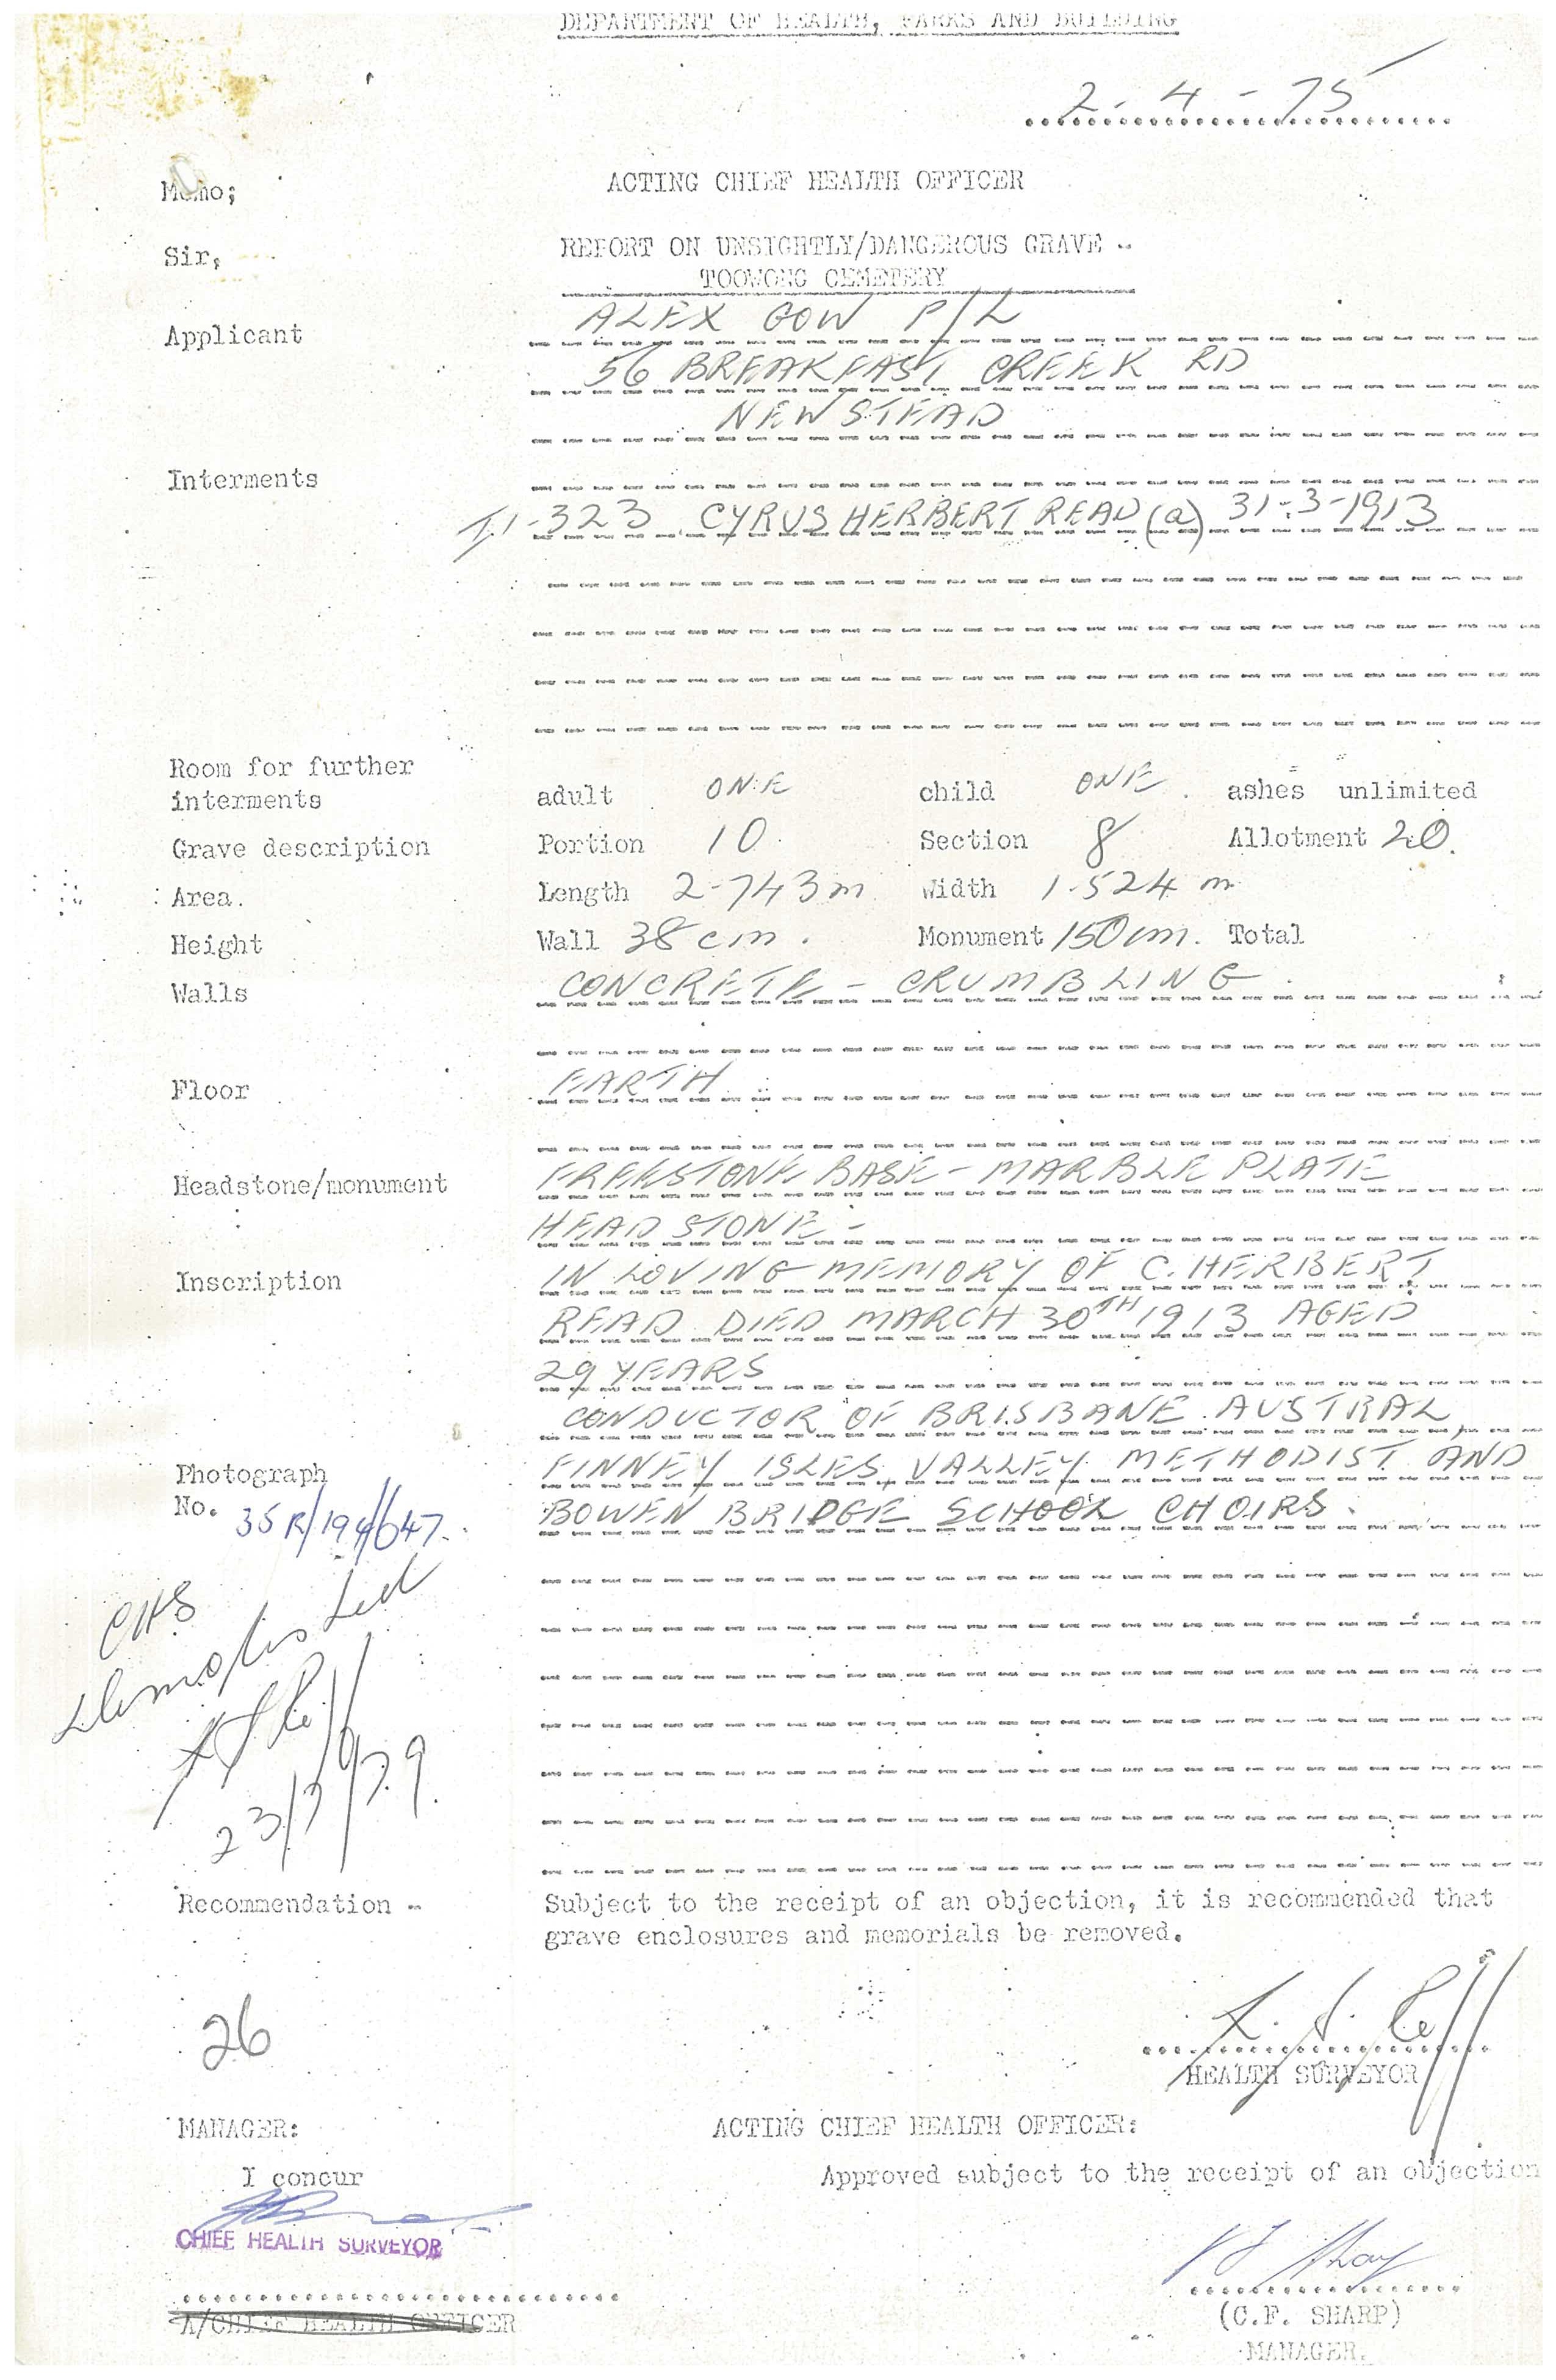 DEPARTMENT OF HEALTH, PARKS AND BUILDING
2-4-75
Memo; ACTING CHIEF HEALTH OFFICER
Sir, REPORT ON UNSIGHTLY/DANGEROUS GRAVE -
TOOWONG CEMETERY
Applicant ALEX GOW P/L
56 BREAKFAST CREEK RD
NEWSTEAD
Interments
T,1-323 CYRUS HERBERT READ (a) 31-3-1913
Room for further
interments adult ONE child ONE ashes unlimited
Grave description Portion 10 Section 8 Allotment 20.
Area. Length 2-743m Width 1.524 m
Height Wall 38 cm. Monument 150 cm. Total
Walls CONCRETE - CRUMBLING
Floor EARTH
Headstone/monument FREESTONE BASE - MARBLE PLATE
HEADSTONE -
Inscription IN LOVING MEMORY OF C. HERBERT
READ DIED MARCH 30TH 1913 AGED
29 YEARS
CONDUCTOR OF BRISBANE AUSTRAL,
Photograph FINNEY ISLES, VALLEY METHODIST AND
No. 35R/194/047. BOWEN BRIDGE SCHOOL CHOIRS.
CHS
Demolished
23/7/79.
Recommendation - Subject to the receipt of an objection, it is recommended that
grave enclosures and memorials be removed.
26
HEALTH SURVEYOR
MANAGER: ACTING CHIEF HEALTH OFFICER:
I concur Approved subject to the receipt of an objection
CHIEF HEALTH SURVEYOR
A/CHIEF HEALTH OFFICER
(C.F. SHARP)
MANAGER.